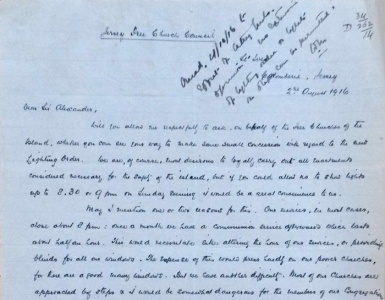 Jersey Free Church Council
D 34
252
/14
Jersey
2nd August 1916
Dear Sir Alexander,
Will you allow me respectfully to ask, on behalf of the Free Churches of the
Island, whether you can see your way to make some small concession with regard to the new
Lighting Order. We are, of course, most desirous to loyally carry out all enactments
considered necessary for the safety of the island, but if you could allow us to show lights
up to 8.30 or 9 pm on Sunday evening it would be a great convenience to us.
May I mention one or two reasons for this. Our services, in most cases,
close about 8 pm: once a month we have a communion service afterwards which lasts
about half an hour. This would necessitate either altering the hour of our services, or providing
blinds for all our windows. The expense of this would press hardly on our poorer churches,
for there are a good many windows. But we have another difficulty. Most of our Churches are
approached by steps & it would be somewhat dangerous for the members of our Congregations